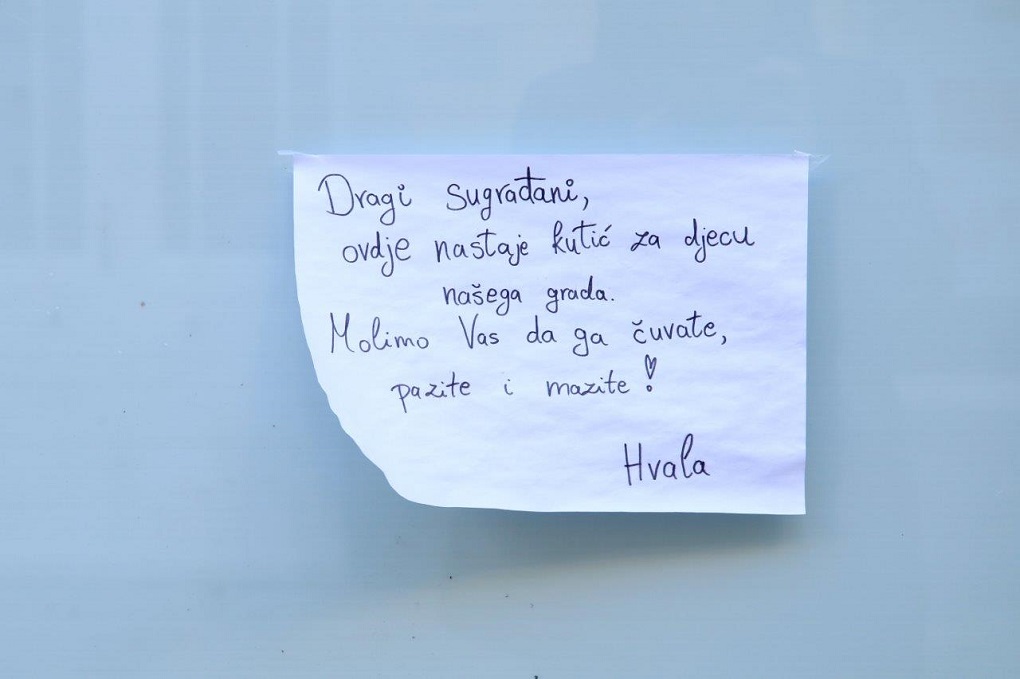 Dragi sugrađani,
ovdje nastaje kutić za djecu
našega grada.
Molimo Vas da ga čuvate,
pazite i mazite!
Hvala